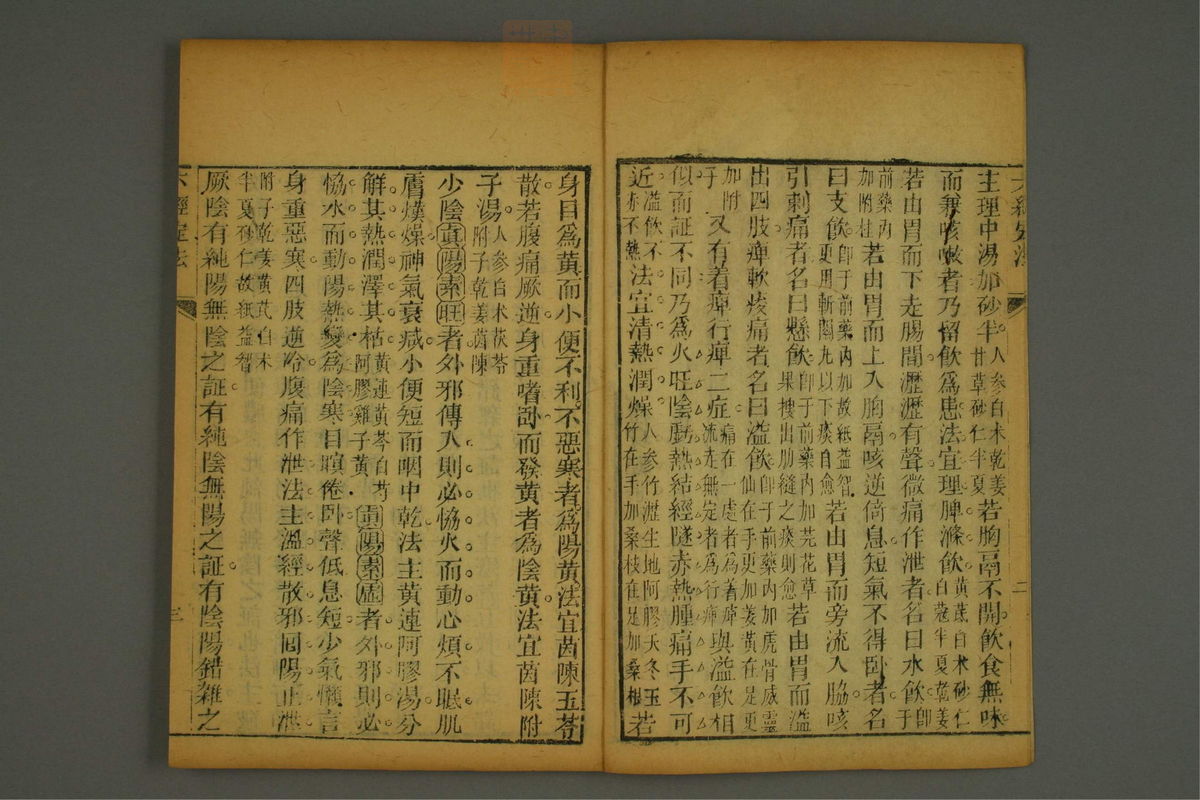 主理中湯加砂半人參白朮乾姜甘草砂仁半夏若胸鬲不開飲食無味
而兼咳嗽者乃留飲爲患法宜理脾滌飲黃茋白朮砂仁白蔻半夏乾姜
若由胃而下走腸間瀝瀝有聲微痛作泄者名曰水飲卽于
前藥內加附桂若由胃而上入胸鬲咳逆倚息短氣不得卧者名
曰支飲卽于前藥內加故紙益智更用斬關丸以下痰自愈若由胃而旁流入脇咳
引刺痛者名曰懸飲卽于前藥內加芫花草果搜出肋縫之痰則愈若由胃而溢
出四肢痺軟痠痛者名曰溢飲卽于前藥內加虎骨威靈仙在手更加姜黃在足更
加附子又有着痺行痺二症痛在一處者爲着痺流走無定者爲行痺與溢飲相
似而証不同乃爲火旺陰虧熱結經隧赤熱腫痛手不可
近溢飲不赤不熱法宜清熱潤燥人參竹瀝生地阿膠天冬玉竹在手加桑枝在足加桑根若
六經定法
二
身目爲黃而小便不利不惡寒者爲陽黃法宜茵陳玉苓
散若腹痛厥逆身重嗜卧而發黃者爲陰黃法宜茵陳附
子湯人參白朮茯苓附子乾姜茵陳
少陰眞陽素旺者外邪傳入則必恊火而動心煩不眠肌
膚熯燥神氣衰减小便短而咽中乾法主黃連阿膠湯分
解其熱潤澤其枯黃連黃芩白芍阿膠雞子黃眞陽素虛者外邪則必
恊水而動陽熱變爲陰寒目瞑倦卧聲低息短少氣懶言
身重惡寒四肢逆冷腹痛作泄法主溫經散邪囘陽止泄
附子乾姜黃茋白朮半夏砂仁故紙益智
厥陰有純陽無陰之証有純陰無陽之証有陰陽錯雜之
六經定法
三